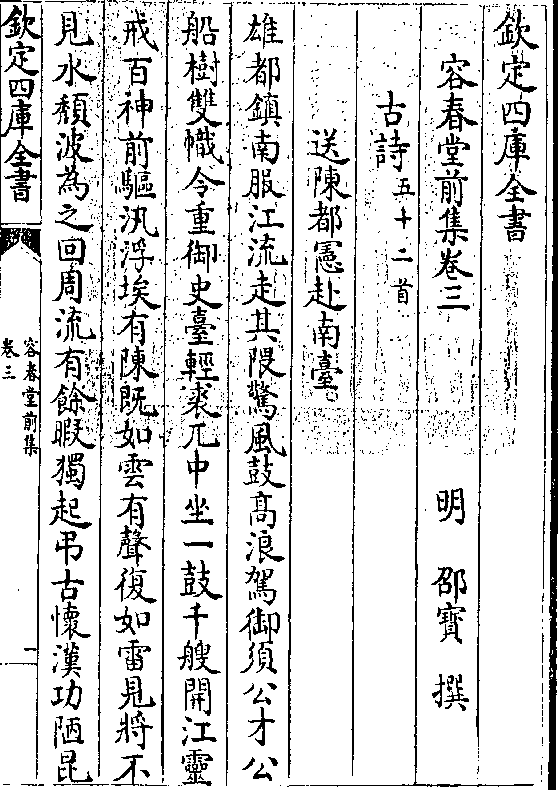 欽定四庫全書
容春堂前集卷三
明 邵寶 撰
古詩五十二首
送陳都憲赴南臺
雄都鎮南服江流走其隈驚風鼓髙浪駕御須公才公
船樹雙幟令重御史臺輕裘兀中坐一鼓千艘開江靈
戒百神前驅汛浮埃有陳既如雲有聲復如雷見將不
見水頽波為之回周流有餘暇獨起弔古懷漢功陋昆
欽定四庫全書
容春堂前集
卷三
一